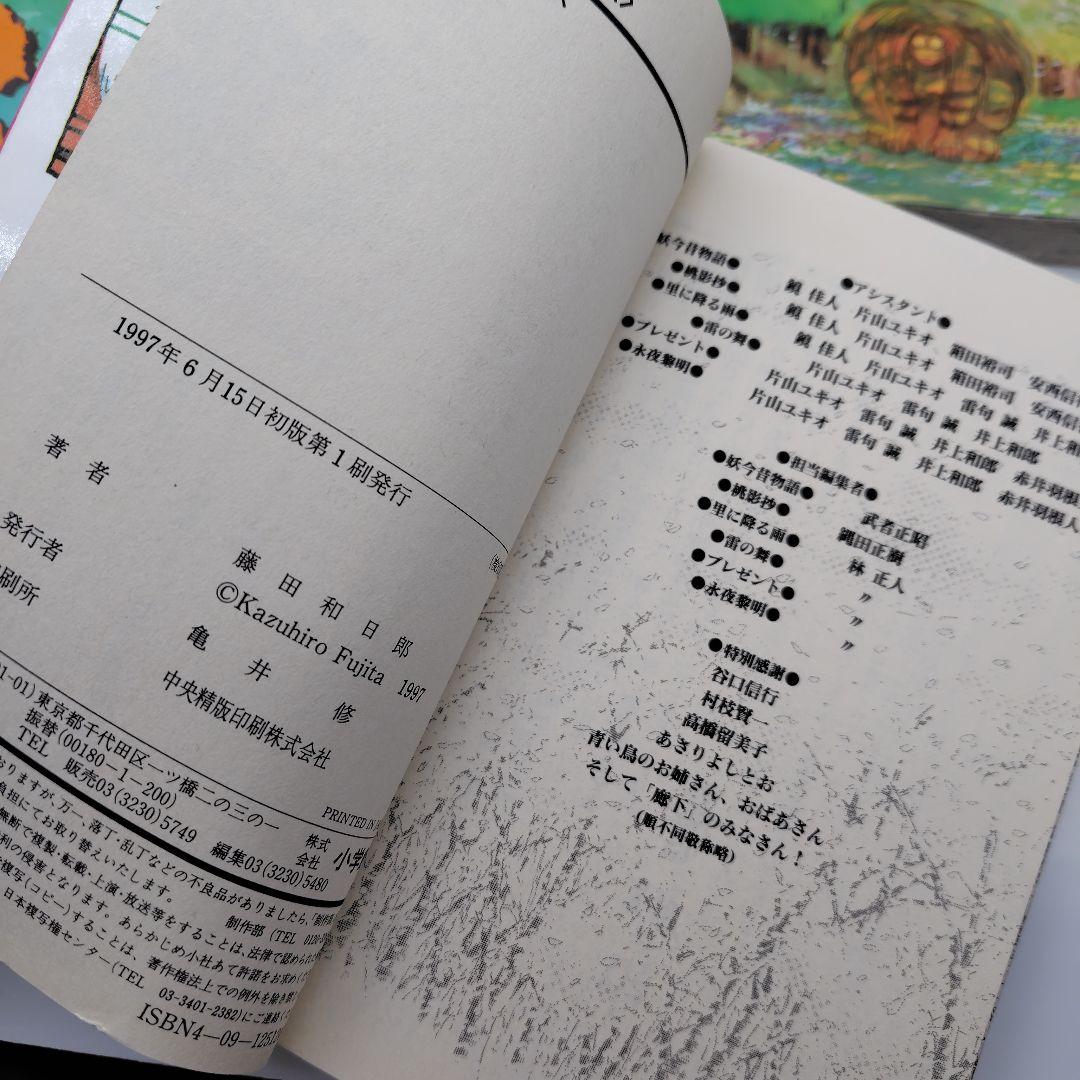 1997年6月15日初版第1刷発行
著者
藤田和日郎
©Kazuhiro Fujita 1997
発行者
亀井修
刷所
中央精版印刷株式会社
PRINTED IN
01)東京都千代田区一ツ橋二の三の一
振替(00180-1-200)
TEL 販売03(3230)5749 編集03(3230)5480
株式会社 小学
おりますが、万一、落丁・乱丁などの不良品がありましたら、「制作
負担にてお取り替えいたします。
制作部(TEL 0120
無断で複製、転載、上演、放送等をすることは、法律で認められた
利の侵害となります。あらかじめ小社あて許諾をお求めく
複写(コピー)することは、著作権法上での例外を除き
日本複写権センター(TEL 03-3401-2382)にご連絡く
ISBN4-09-1251
●アシスタント●
妖今昔物語● 鏡 佳人 片山ユキオ 箱田裕司 安西信
●桃影抄● 鏡 佳人 片山ユキオ 箱田裕司 安西信
●里に降る雨● 鏡 佳人 片山ユキオ 雷句 誠 井上和
●雷の舞● 片山ユキオ 雷句 誠 井上和郎
●プレゼント● 片山ユキオ 雷句 誠 井上和郎 赤井羽根
●永夜黎明● 片山ユキオ 雷句 誠 井上和郎 赤井羽根人
●担当編集者●
●妖今昔物語● 武者正昭
●桃影抄● 縄田正樹
●里に降る雨● 林 正人
●雷の舞● 〃
●プレゼント● 〃
●永夜黎明● 〃
●特別感謝●
谷口信行
村枝賢一
高橋留美子
あさりよしとお
青い鳥のお姉さん、おばあさん
そして「廊下」のみなさん!
(順不同敬称略)